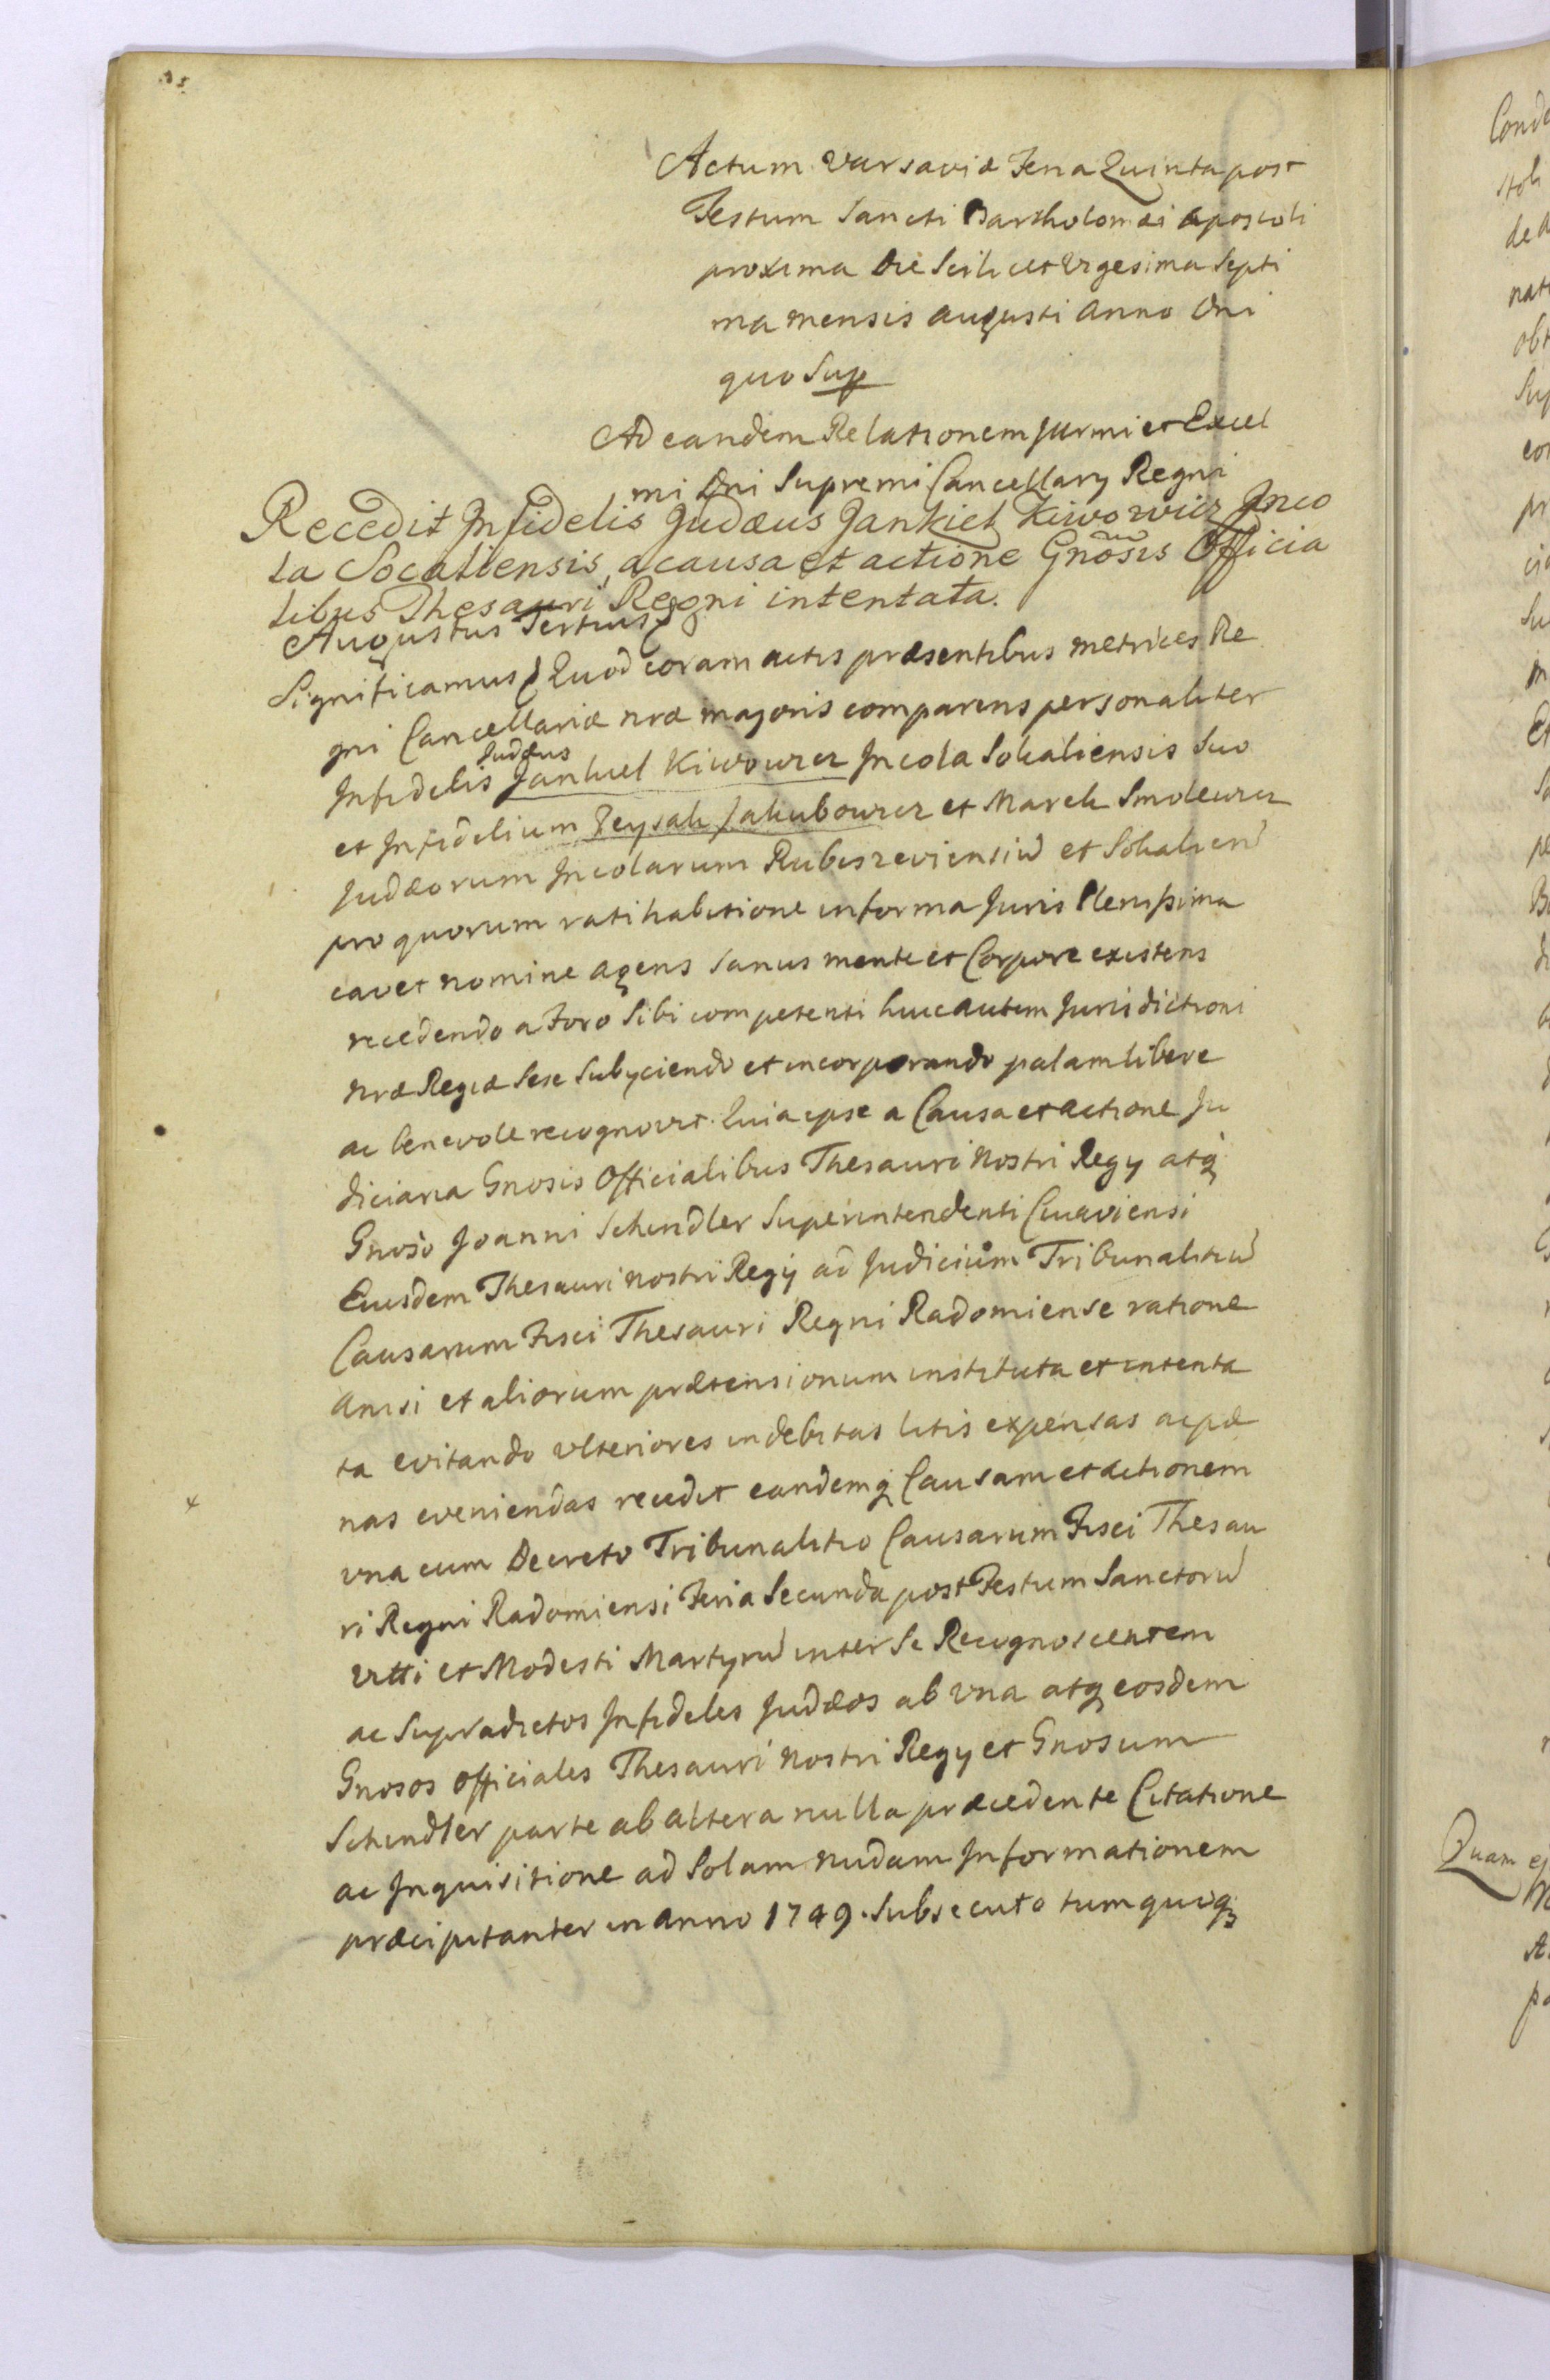 Actum Varsaviæ Feria Quinta post
Festum Sancti Bartholomæi Apostoli
proxima Die Scilicet Vigesima Septi
ma mensis Augusti Anno Dni
quo Sup
Ad eandem Relationem Jllrmi et Excel
mi Dni Supremi Cancellary Regni
Recedit Jnfidelis Judæus Jankiel Kiwowicz Jnco
la Socaliensis, a causa et actione Gnosis Officia
libus Thesauri Regni intentata.
Augustus Tertius
Significamus Quod coram actis præsentibus metrices Re
gni Cancellariæ nræ majoris comparens personaliter
Judæus
Jnfidelis Jankiel Kiwowicz Jncola Sokaliensis Suo
et Jnfidelium Peysak Jakubowicz et Marek Smolewicz
Judæorum Jncolarum Rubieszeviensiu et Sokalien
pro quorum ratihabitione in forma Juris Plenissima
cavet nomine agens Sanus mente et Corpore existens
recedendo a Foro Sibi competenti huic autem Jurisdictioni
nræ Regiæ Sese Subyciendo et incorporando palam libere
ac benevole recognovit. Quia ipse a Causa et actione Ju
diciaria Gnosis Officialibus Thesauri Nostri Regy atq
Gnoso Joanni Schindler Superintendenti Cuiaviensi
Eiusdem Thesauri nostri Regÿ ad Judicium Tribunalitiu
Causarum Fisci Thesauri Regni Radomiense ratione
Anisi et aliorum prætensionum instituta et intenta
ta evitando ulteriores indebitas litis expensas ac pæ
nas eveniendas recedit eandemq Causam et actionem
una cum Decreto Tribunalitio Causarum Fisci Thesau
ri Regni Radomiensi Feria Secunda post Festum Sanctoru
Vitti et Modesti Martyru inter Se Recognoscentem
ac Supradictos Jnfideles Judæos ab una atq eosdem
Gnosos Officiales Thesauri nostri Regy et Gnosum
Schindler parte ab altera nulla præcedente Citatione
ac Jnquisitione ad Solam nudam Jnformationem
præcipitanter in Anno 1749. Subsecuto tum quoq